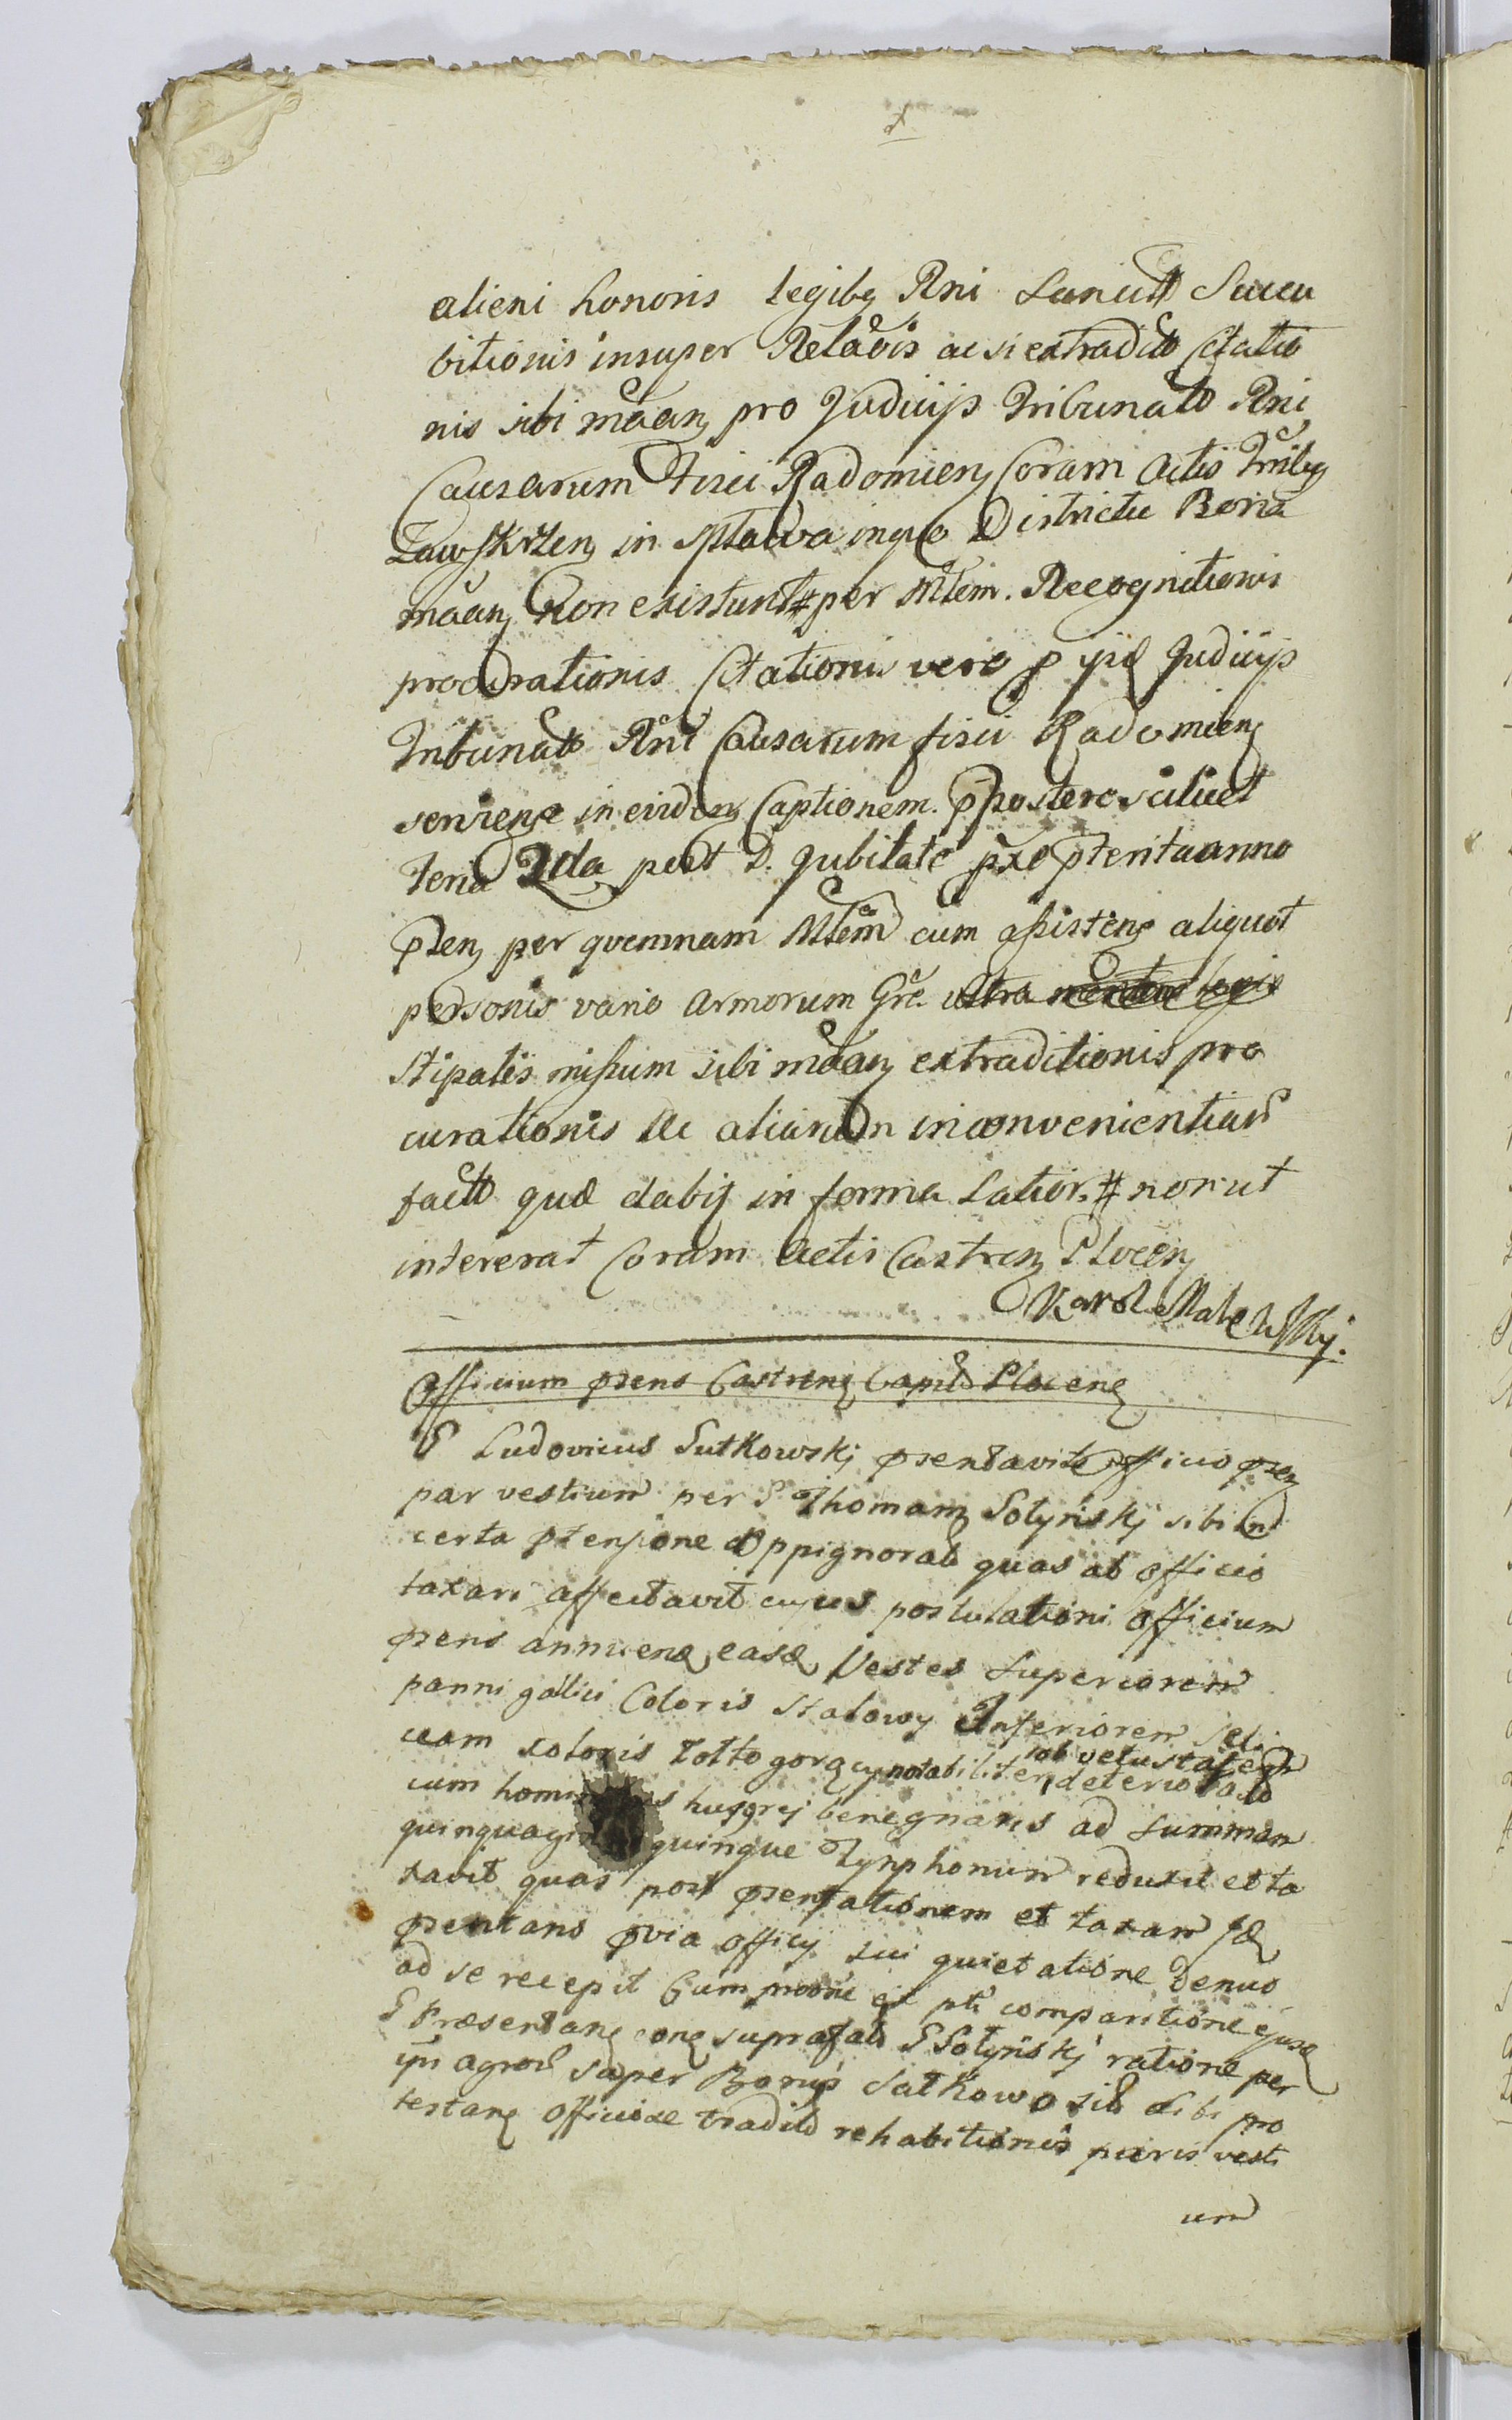 alieni honoris legibq Rni Sancitt Succu
bitionis insuper Relaõis ac si extraditt Citatio
nis sibi mãanq pro Judicijs Tribunalt Rni
Causarum Fisci Radomienq Coram Actis Trrilbq
Zawskrzenq in Mlawa inqo Districtu Bona
mãanq Non existunt # per Mlem. Recognitionis
procurationis Citationis vero p ijsd Judicijs
Tribunalt Rni Causarum fisci Radomienq
servienqe in evidenq Captionem. pposteros scilicet
feria 2da post D. Jubilate pxe pterita anno
pten per quemnam Mlem cum assistenq aliquot
personis vario armorum Gre.
stipatis missum sibi mãanq extraditionis pro
curationis ac aliarum inconvenientiaru
factt qua dabit in forma Latior. # non ut
intererat Coram Actis Castrenq Plocenq
Karol Malewskij.
Officium psens Castrenq Capitl Plocenq
G Ludovicus Sutkowskj psentavit officio psenq
par vestium per G Thomam Solyńskj sibi in
certa ptensione Oppignorat quas ab officio
taxari affectavit cujus postulationi officium
psens annuend easd Vestes Superiorem
panni gallici Coloris Stalowy Inferiorem seri
ceam coloris Zołto gorący notabiliter ob vetustatem deteriorat
cum hominibus hujgrej benegnaris ad summam
quinquaginta quinque Zynphonum reduxit et ta
xavit quas post psentationem et taxam sd
psentans pvia officij sui quietatione denuo
ad se recepit Cum pmorie et pti comparitione ejusd
G Præsentanq conq suprafat G Solyńskj ratione per
ipm agrorl super Bonis Sutkowo sit sibi pro
testanq officiose tradit rehabitionis paris vesti
um